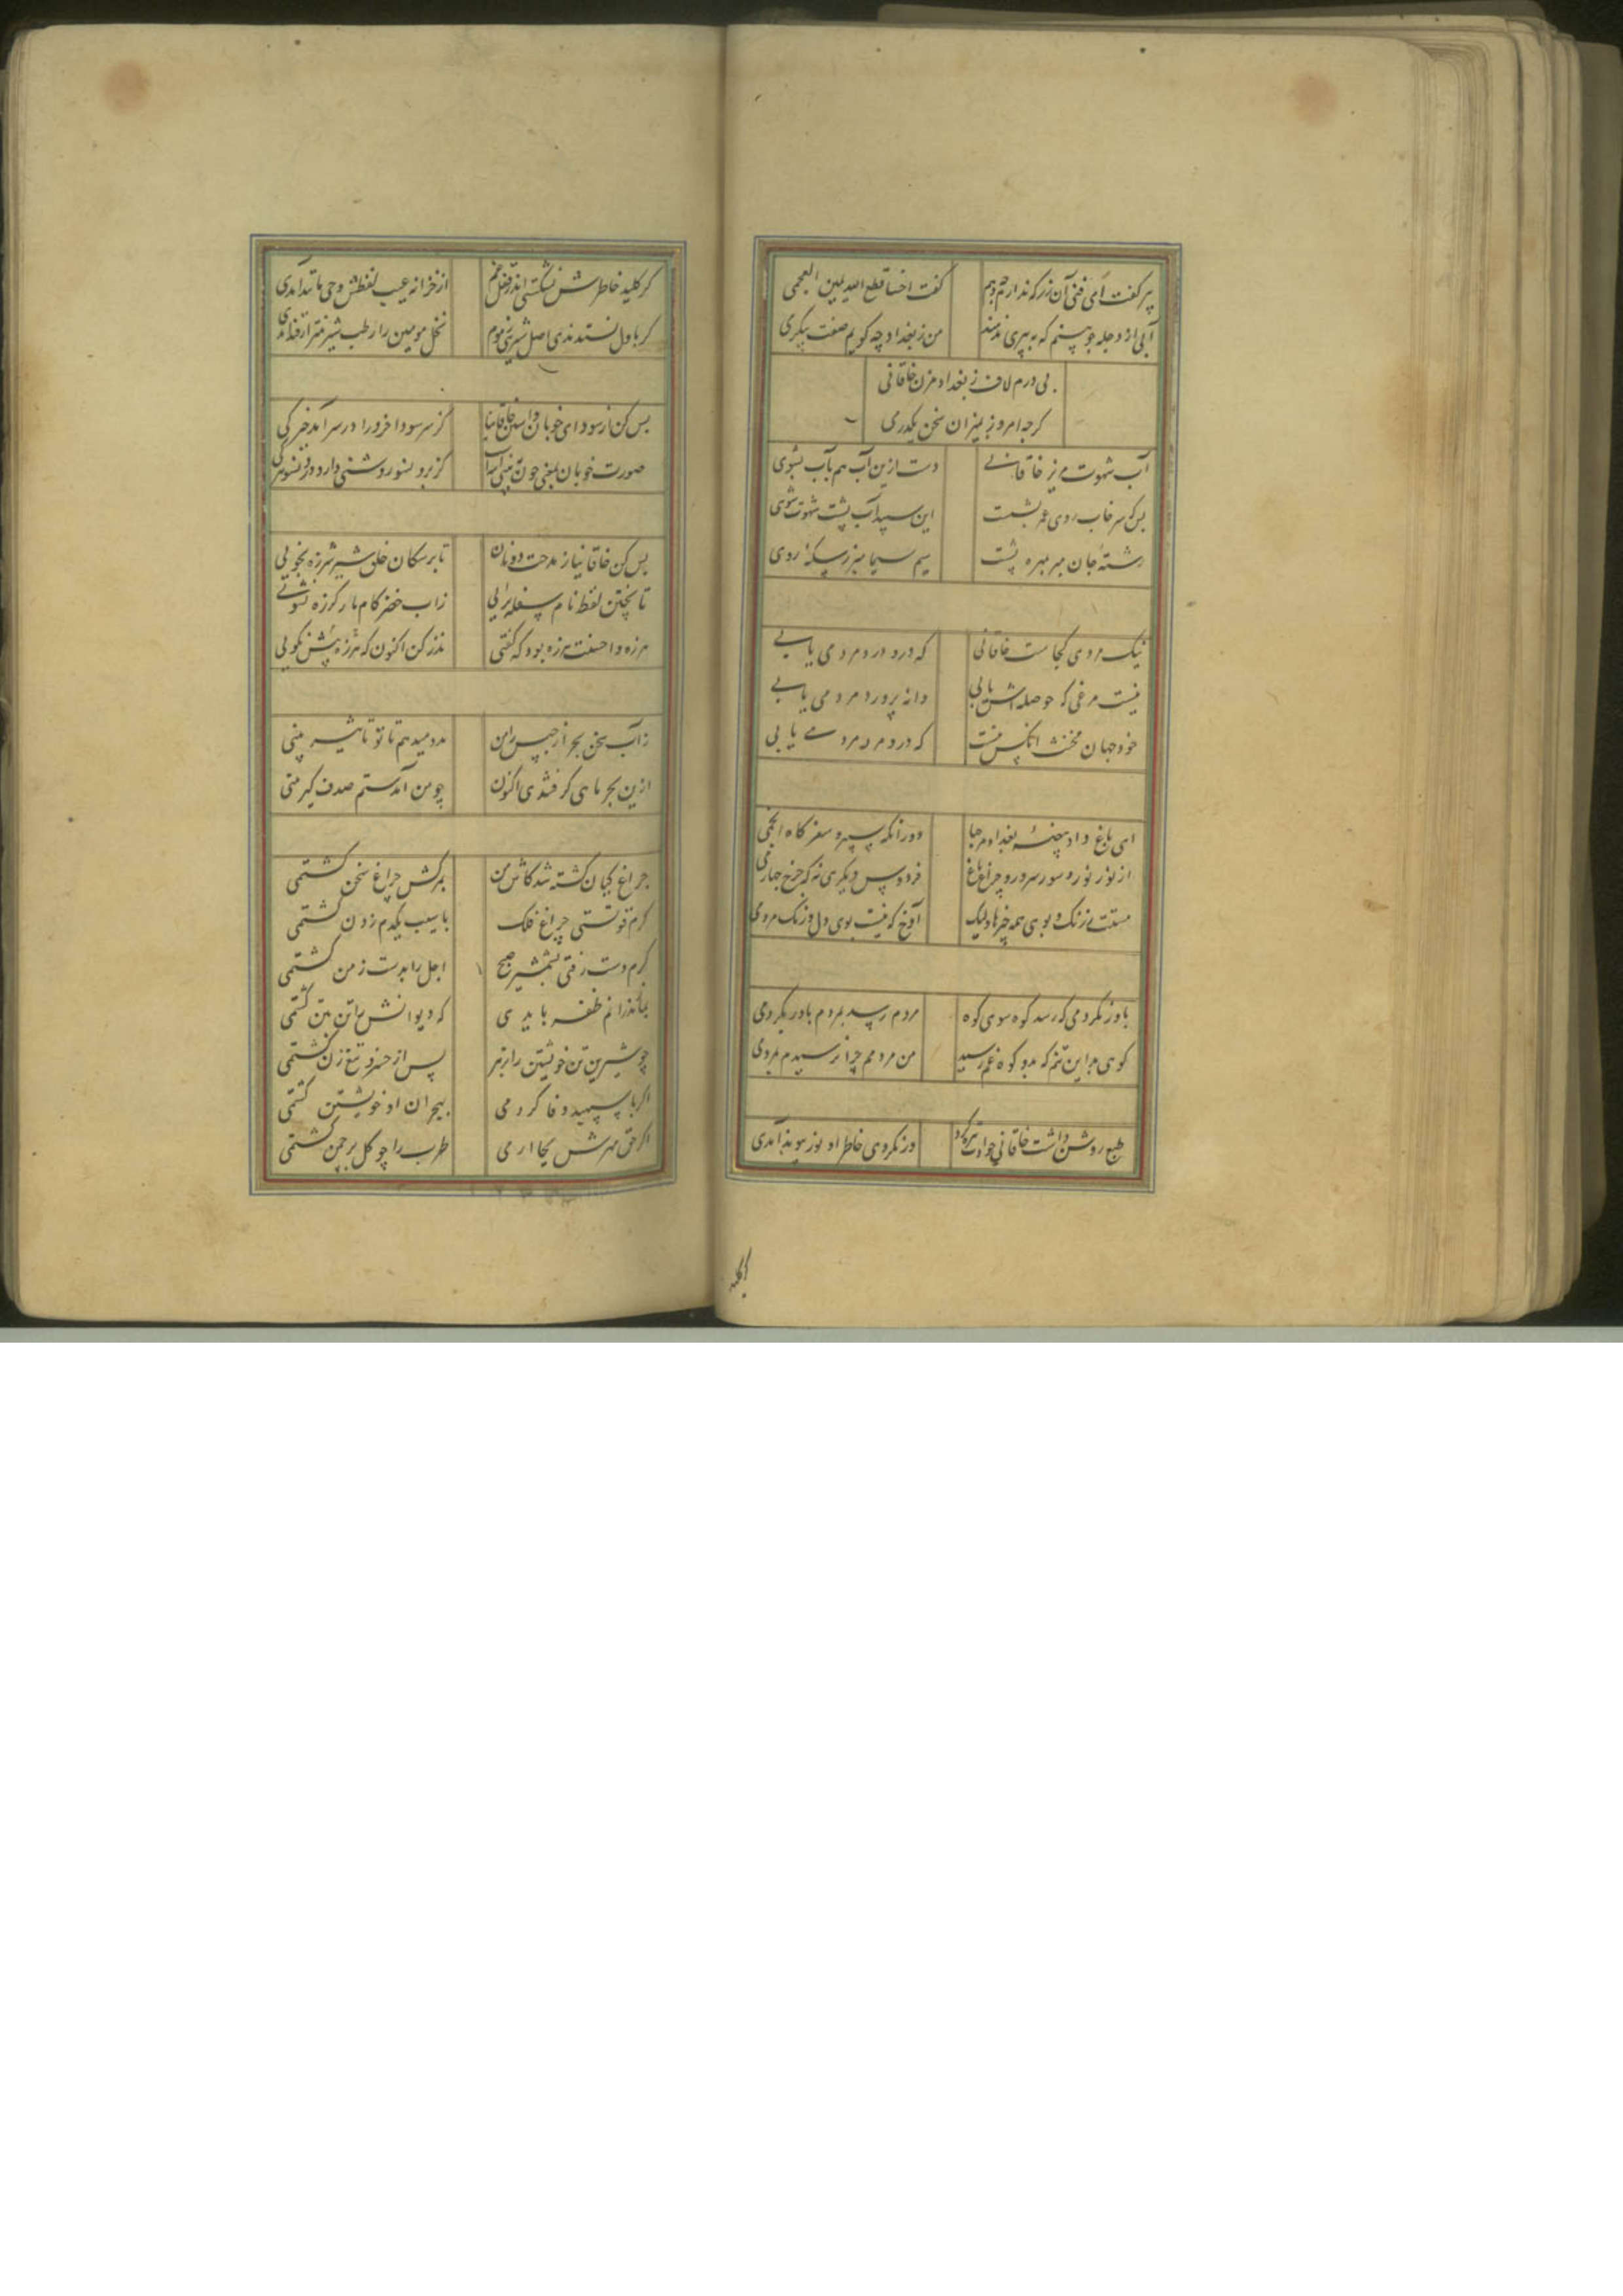 پیر گفت آمی فنی آن زر که ندارم چه دهم
گفت اخسا قطع الله یمین العجمی
آبی از دجله چو بینم که به پیری ندهند
من ز بغداد چه گویم صفت بیکری
بی درم لاف ز بغداد مزن خاقانی
کرچه امروز بمیزان سخن یکدری
آب شهوت مریز خاقانی
دست ازین آب هم بآب بشوی
بس که سرخاب روی عمر بشست
این سپید آب پشت شهوت شوی
رشتهٔ جان مبر بمهره پشت
سیم سیما مبر ز سکهٔ روی
نیک مردی کجاست خاقانی
که درو درد مردمی یابی
نیست مرغی که حوصله اش یابی
دانه پرورد مردمی یابی
خود جهان مخنث آنکس نیست
که درو مرد مردمی یابی
ای باغ داد بغداد مرحبا
دورانکه سپهر و سفرکاه انجمی
از نور نوره سور سرور و چراغ باغ
فردوس دیگری نه که چرخ چهارمی
هستت ز رنگ و بوی همه چیزها ولیک
آوخ که نیست بوی دل و رنگ مردمی
باور نکردمی که رسد کوه سوی کوه
مردم رسد بمردم باور بکردمی
کوهی بد این تنم که بدو کوه غم رسید
من مردمم چرا نرسیدم بمردمی
طبع روشن داشت خاقانی حوادث تیره کرد
ور نکردی خاطر او نور پیوند آمدی
کر کلید
کر کلید خاطرش نشکستی اندر قفل غم
از خزانه غیب لفظش وحی مانند آمدی
کر باول نستدندی اصل شیرینی ز موم
نخل مومین را رطب شیرین تر از قند آمدی
بس کن از سودای خوبان داشتن خاقانیا
کز سر سودا خرد را در سر آمد خیرگی
صورت خوبان بمعنی چون ببینی آینه است
کز برون سو روشنی دارد درون سو تیرگی
بس کن خاقانیا ز مدحت دونان
تا بر سکان خلق شیر شرزه نجویی
تا بچنین لفظ نام سفله نرانی
زاب خضر کام مار کرزه نشویی
هرزه و احسنت هرزه بود که گفتی
نذر کن اکنون که هرزه بیش نکویی
ز آب سخن بحر ارجیس را من
مدد میدهم تا تو تاثیر بینی
ازین بحر ماهی کرفتندی اکنون
چو من آمدستم صدف گیر متی
چراغ کیان کشته شد کاش من
بمرگش چراغ سخن کشتمی
کرم قوتستی چراغ فلک
باسیب یکدم زدن کشتمی
کرم دست رفتی بشمشیر صبح
اجل را بدست زمن کشتمی
بماتدرانم ظفر بایدی
که دیوانش را تن بتن کشتمی
چو شیرین تن خویشتن را بزهر
پس از خسرو تیغ زن کشتمی
اگر با سپهبد وفا کردمی
بهجران او خویشتن کشتمی
اگر حق مهرش بجا آرمی
طرب را چو گل بر چمن کشتمی